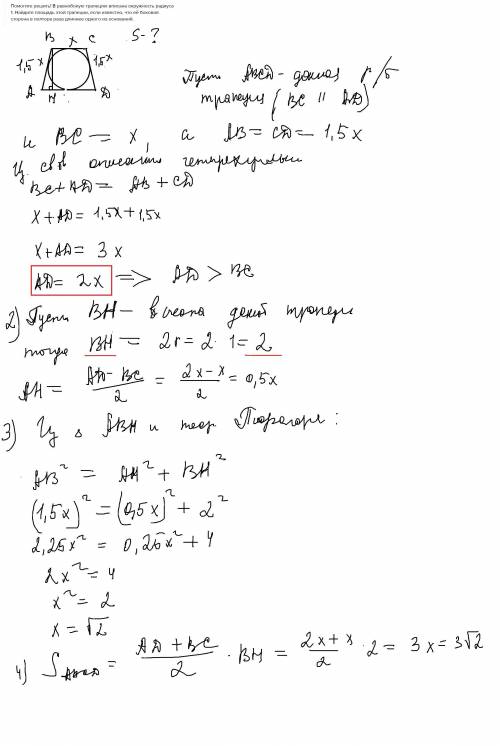 Помогите решить! В равнобокую трапецию вписана окружность радиуса
1. Найдите площадь этой трапеции, если известно, что её боковая
сторона в полтора раза длиннее одного из оснований.
S-?
B x C
1,5x 1,5x
A H D
Пусть ABCD - данная р/б
трапеция (BC || AD)
и BC = x, а AB = CD = 1,5x
Из св. описанного четырехугольника
BC + AD = AB + CD
x + AD = 1,5x + 1,5x
x + AD = 3x
AD = 2x => AD > BC
2) Пусть BH - высота данной трапеции
тогда BH = 2r = 2·1 = 2
AH = AD - BC / 2 = 2x - x / 2 = 0,5x
3) Из Δ ABH и теор. Пифагора:
AB² = AH² + BH²
(1,5x)² = (0,5x)² + 2²
2,25x² = 0,25x² + 4
2x² = 4
x² = 2
x = √2
4) S ABCD = AD + BC / 2 · BH = 2x + x / 2 · 2 = 3x = 3√2